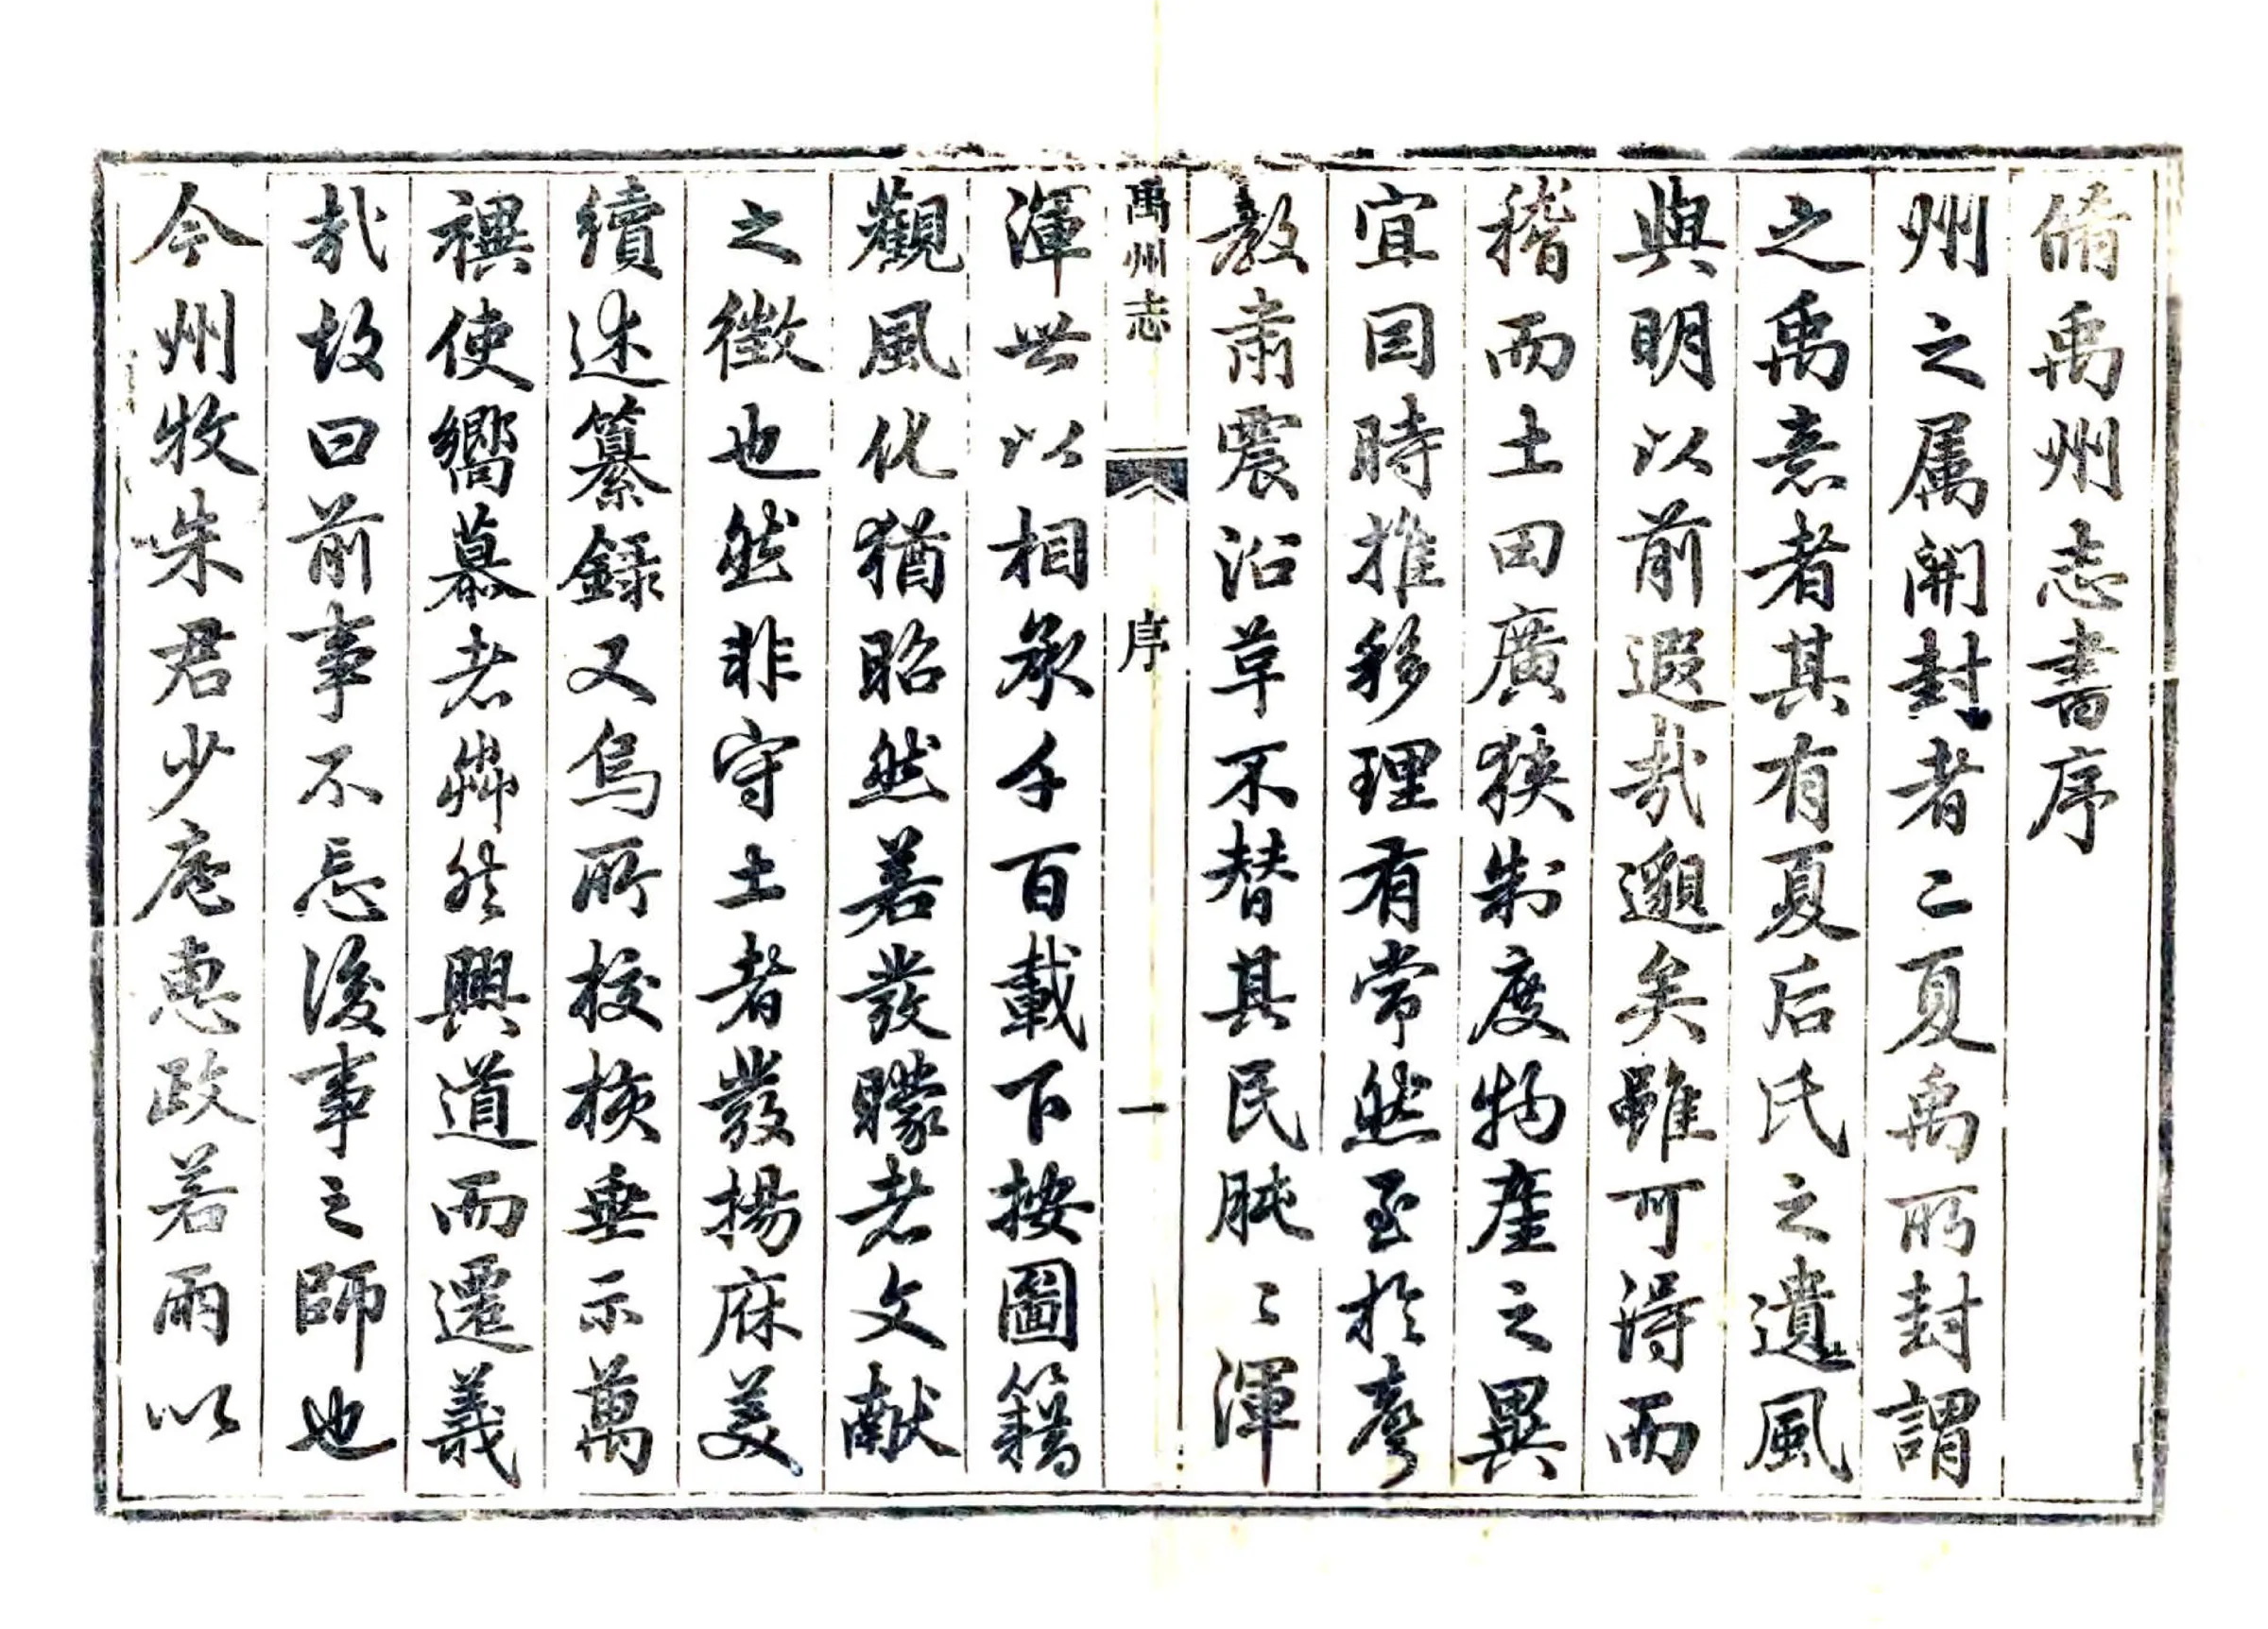 脩禹州志書序
州之属開封者二夏禹所封謂
之禹意者其有夏后氏之遺風
與明以前遐哉邈矣雖可得而
稽而土田廣狹制度物產之異
宜因時推移理有常然至於
教肅震沿草不替其民肫〻渾
禹州志
序
一
渾世以相承千百載下按圖籍
觀風化猶昭然若發矇者文献
之徵也然非守土者發揚庥美
續述纂錄又烏所挍挨垂示萬
禩使嚮慕者然興道而遷義
哉故曰前事不忘後事之師也
今州牧朱君少庵惠政若雨以